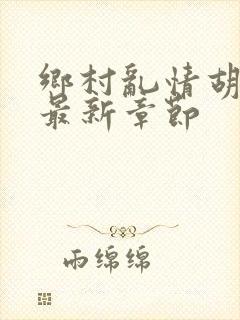 鄉村亂情胡
最新章節
雨绵绵